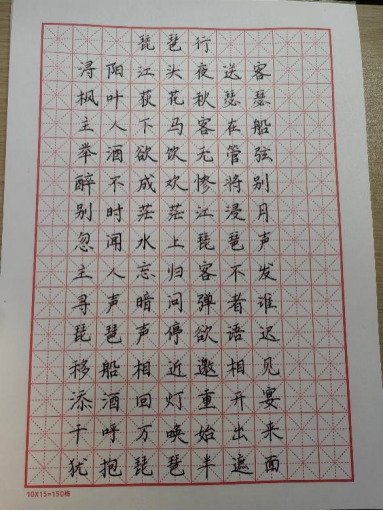 琵琶行
浔阳江头夜送客
枫叶荻花秋瑟瑟
主人下马客在船
举酒欲饮无管弦
醉不成欢惨将别
别时茫茫江浸月
忽闻水上琵琶声
主人忘归客不发
寻声暗问弹者谁
琵琶声停欲语迟
移船相近邀相见
添酒回灯重开宴
千呼万唤始出来
犹抱琵琶半遮面
10X15=150格